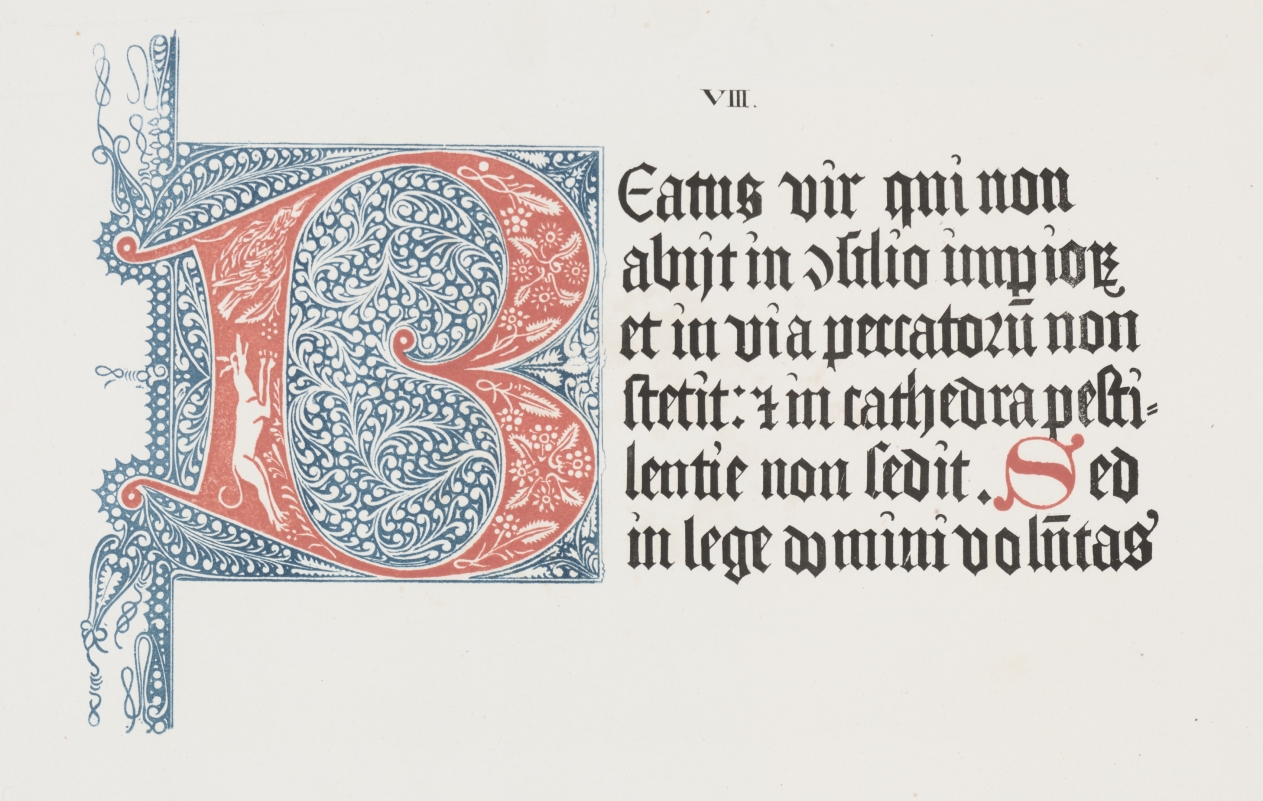 VIII.
BEatus vir qui non
abijt in ↄsilio impioꝝ
et in via peccatorū non
stetit: ⁊ in cathedra pesti⸗
lentie non sedit. Sed
in lege domini volūtas